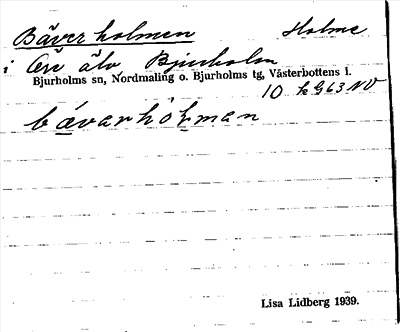 Bäverholmen Holme
i Öre älv Bjurholm
Bjurholms sn, Nordmaling o. Bjurholms tg, Västerbottens l.
10 63 NV
bävarhòḷman
Lisa Lidberg 1939.